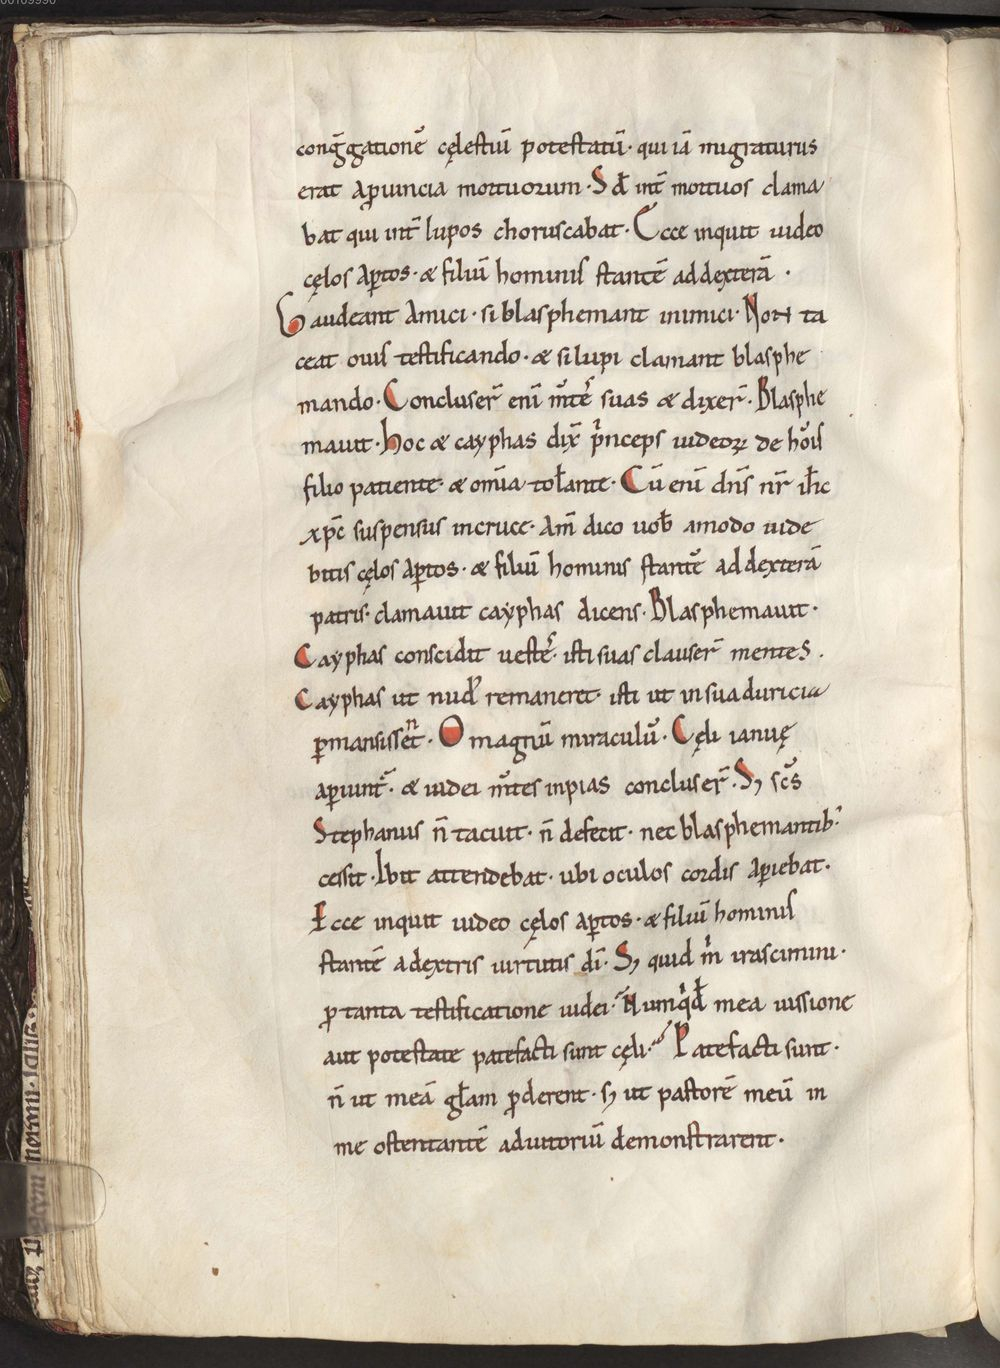 00109990
congg̅atione̅ cęlestiu̅ potestatu̅· qui ia̅ migraturus
erat aꝓuincia mortuorum · S ꝺ̅ int̅ mortuos clama
bat qui int̅ lupos choruscabat· Ecce inquit uideo
cęlos aꝑtos· & filiu̅ hominis stante̅ addextera̅ ·
Gaudeant amici · si blasphemant inimici· Non ta
ceat ouis testificando· & si lupi clamant blasphe
mando· Concluser̅ eni̅ m̅te̅s suas & dixer̅· Blasphe
mauit· hoc & cayphas dix̅ pͥnceps iudeoꝝ de ho̅is
filio patiente· & om̅ia tol̅ante· Cu̅ eni̅ dn̅s nr̅ ih̅c
xp̅c suspensus incruce· Am̅ dico uob̅ amodo uide
bitis cęlos aꝑtos· & filiu̅ hominis stante̅ addextera̅
patris· clamauit cayphas dicens· Blasphemauit·
Cayphas conscidit ueste̅s· isti suas clauser̅ mentes.
Cayphas ut nud᷒ remaneret· isti ut in sua duricia
ꝑmansisse̅nt· O magnu̅ miraculu̅· Cęli ianuę
aꝑiunt᷑· & iudei m̅tes inpias concluser̅· Sꝫ sc̅s
Stephanus n̅ tacuit· n̅ defecit· nec blasphemantib᷒
cessit· Ibit attendebat· ubi oculos cordis aꝑiebat·
Ecce inquit uideo cęlos aꝑtos· & filiu̅ hominis
stante̅ adextris uirtutis di̅· Sꝫ quid m̅ irascimini·
ꝓ tanta testificatione iudei· Numqͥd̅ mea uissione
aut potestate patefacti sunt cęli· Patefacti sunt·
n̅ ut mea̅ gl̅am ꝑderent· sꝫ ut pastore̅ meu̅ in
me ostentante̅ adiutoriu̅ demonstrarent·